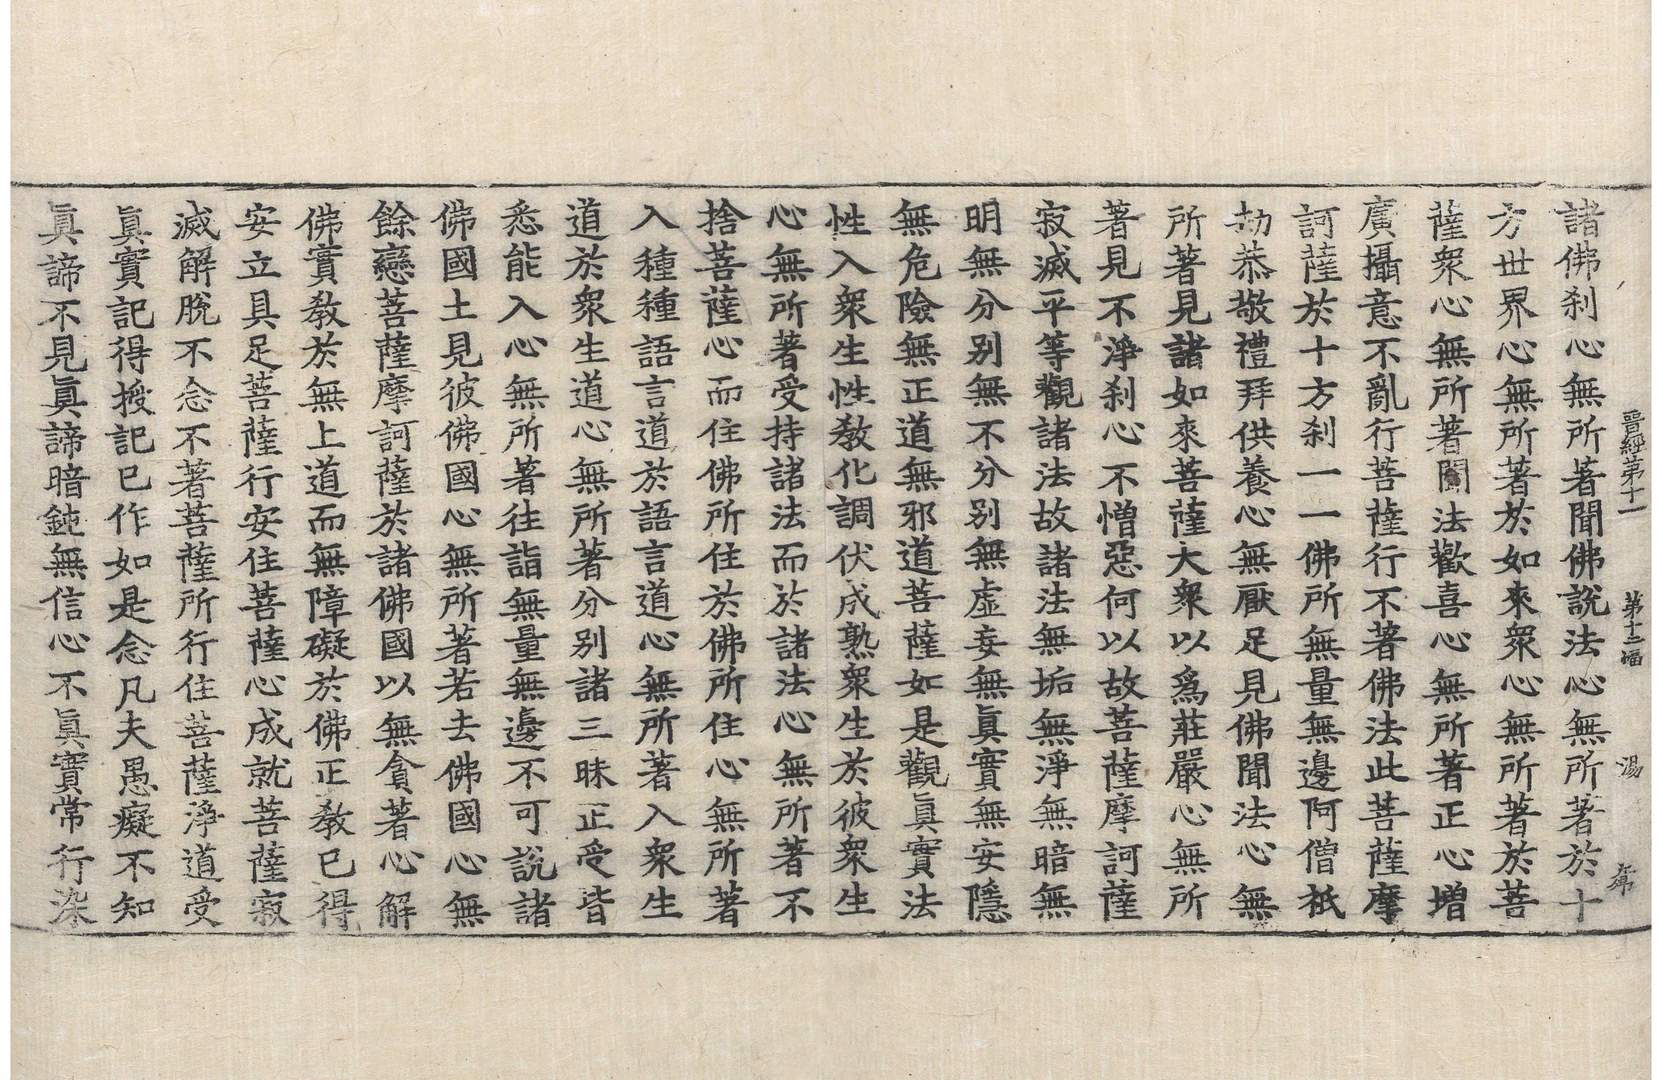 晉經第十一　第十二幅　湯
諸佛刹心無所著聞佛說法心無所著於十
方世界心無所著於如來衆心無所著於菩
薩衆心無所著聞法歡喜心無所著正心增
廣攝意不亂行菩薩行不著佛法此菩薩摩
訶薩於十方刹一一佛所無量無邊阿僧祇
劫恭敬禮拜供養心無厭足見佛聞法心無
所著見諸如來菩薩大衆以爲莊嚴心無所
著見不淨刹心不憎惡何以故菩薩摩訶薩
寂滅平等觀諸法故諸法無垢無淨無暗無
明無分別無不分別無虛妄無眞實無安隱
無危險無正道無邪道菩薩如是觀眞實法
性入衆生性敎化調伏成熟衆生於彼衆生
心無所著受持諸法而於諸法心無所著不
捨菩薩心而住佛所住於佛所住心無所著
入種種語言道於語言道心無所著入衆生
道於衆生道心無所著分別諸三昧正受皆
悉能入心無所著往詣無量無邊不可說諸
佛國土見彼佛國心無所著若去佛國心無
餘戀菩薩摩訶薩於諸佛國以無貪著心解
佛實敎於無上道而無障礙於佛正敎已得
安立具足菩薩行安住菩薩心成就菩薩寂
滅解脫不念不著菩薩所行住菩薩淨道受
眞實記得授記已作如是念凡夫愚癡不知
眞諦不見眞諦暗鈍無信心不眞實常行染